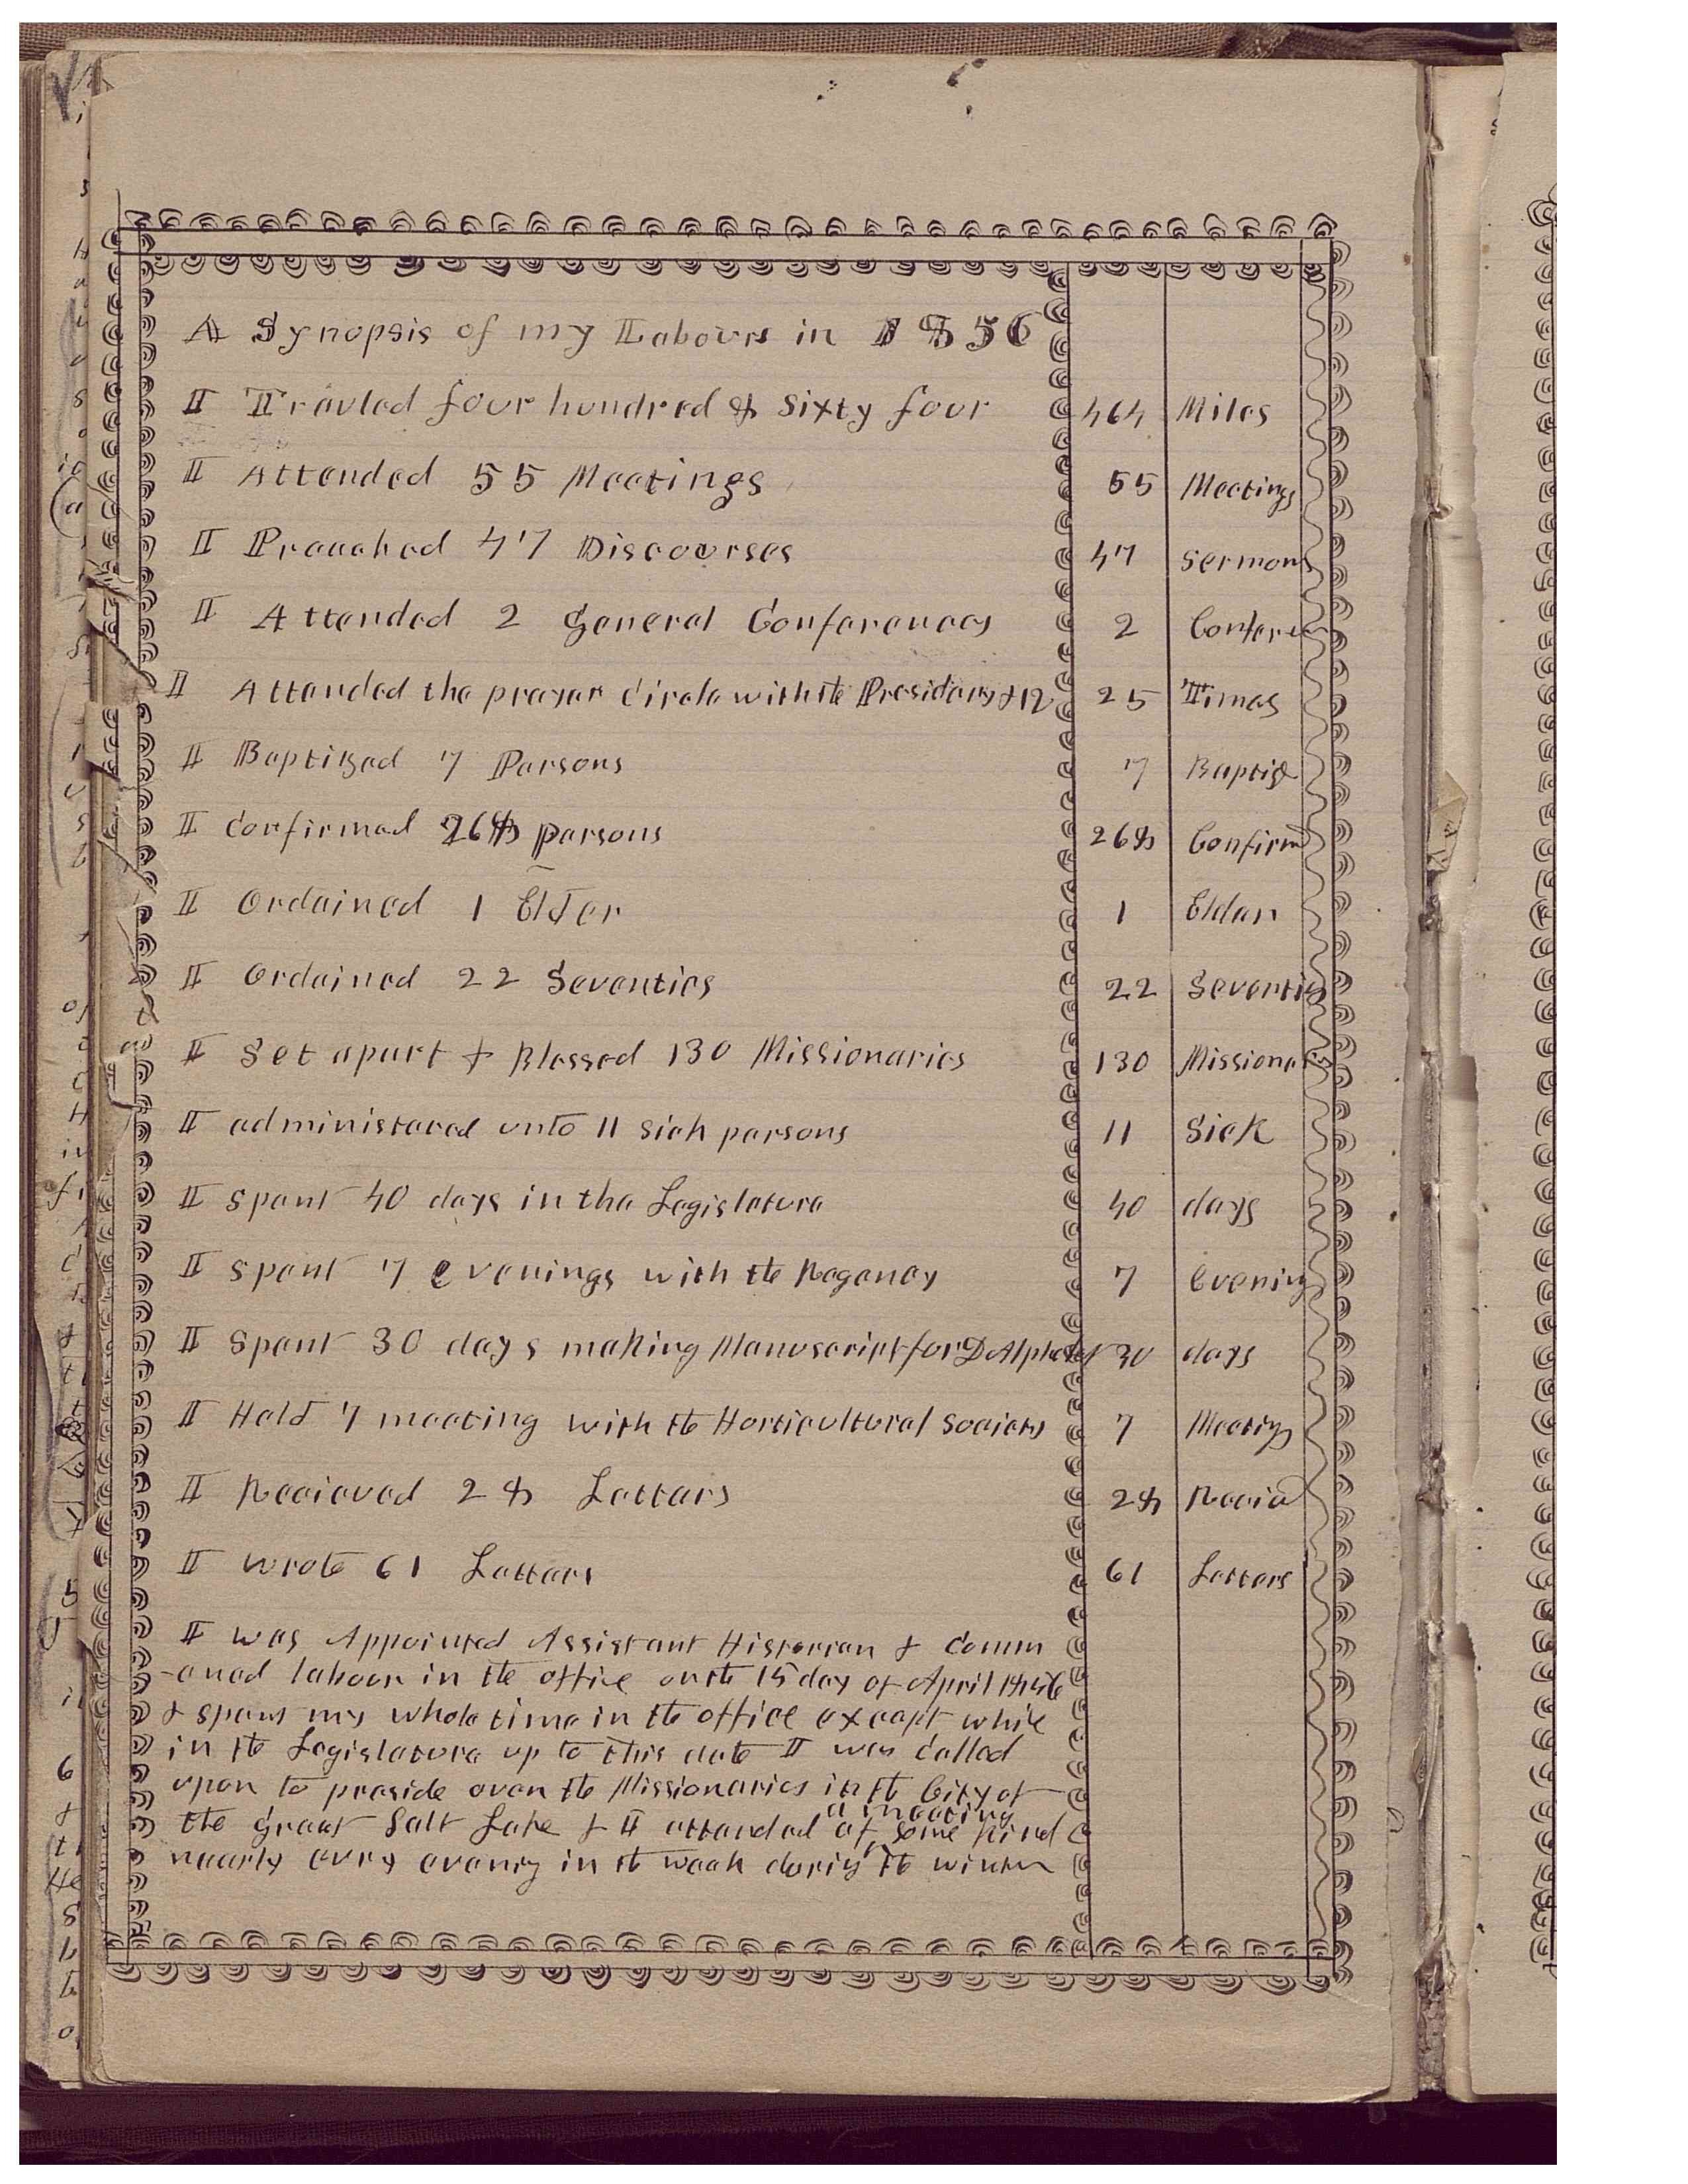 A Synopsis of my Labours in 1856
I Travled four hundred & Sixty four 464 Miles
I Attended 55 Meetings 55 Meetings
I Preached 47 Discourses 47 Sermons
I Attended 2 General Conferences 2 Confere
I Attended the prayer Circle with the Presidency & 12 25 Times
I Baptized 7 Persons 7 Baptize
I Confirmed 268 persons 268 Confirm
I Ordained 1 Elder 1 Elder
I Ordained 22 Seventies 22 Seventies
I Set apart & Blessed 130 Missionaries 130 Missionaries
I administered unto 11 sick persons 11 Sick
I spent 40 days in the Legislature 40 days
I spent 7 evenings with the Regency 7 Evening
I Spent 30 days making Manuscript for D Alphabet 30 days
I Held 7 meeting with the Horticultural Society 7 Meetings
I Recieved 28 Letters 28 Recied
I wrote 61 Letters 61 Letters
I was Appointed Assistant Historian & Comm
-enced labour in the office on the 15 day of April 1856
& spent my whole time in the office except while
in the Legislature up to this date I was Called
upon to preside over the Missionaries in the City of
the Great Salt Lake & I attended a meeting of some kind
nearly evry evening in the week during the winter